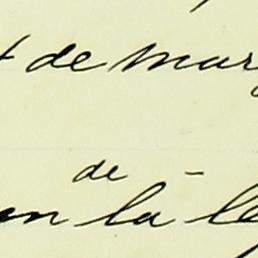 de mar
de -
en la le